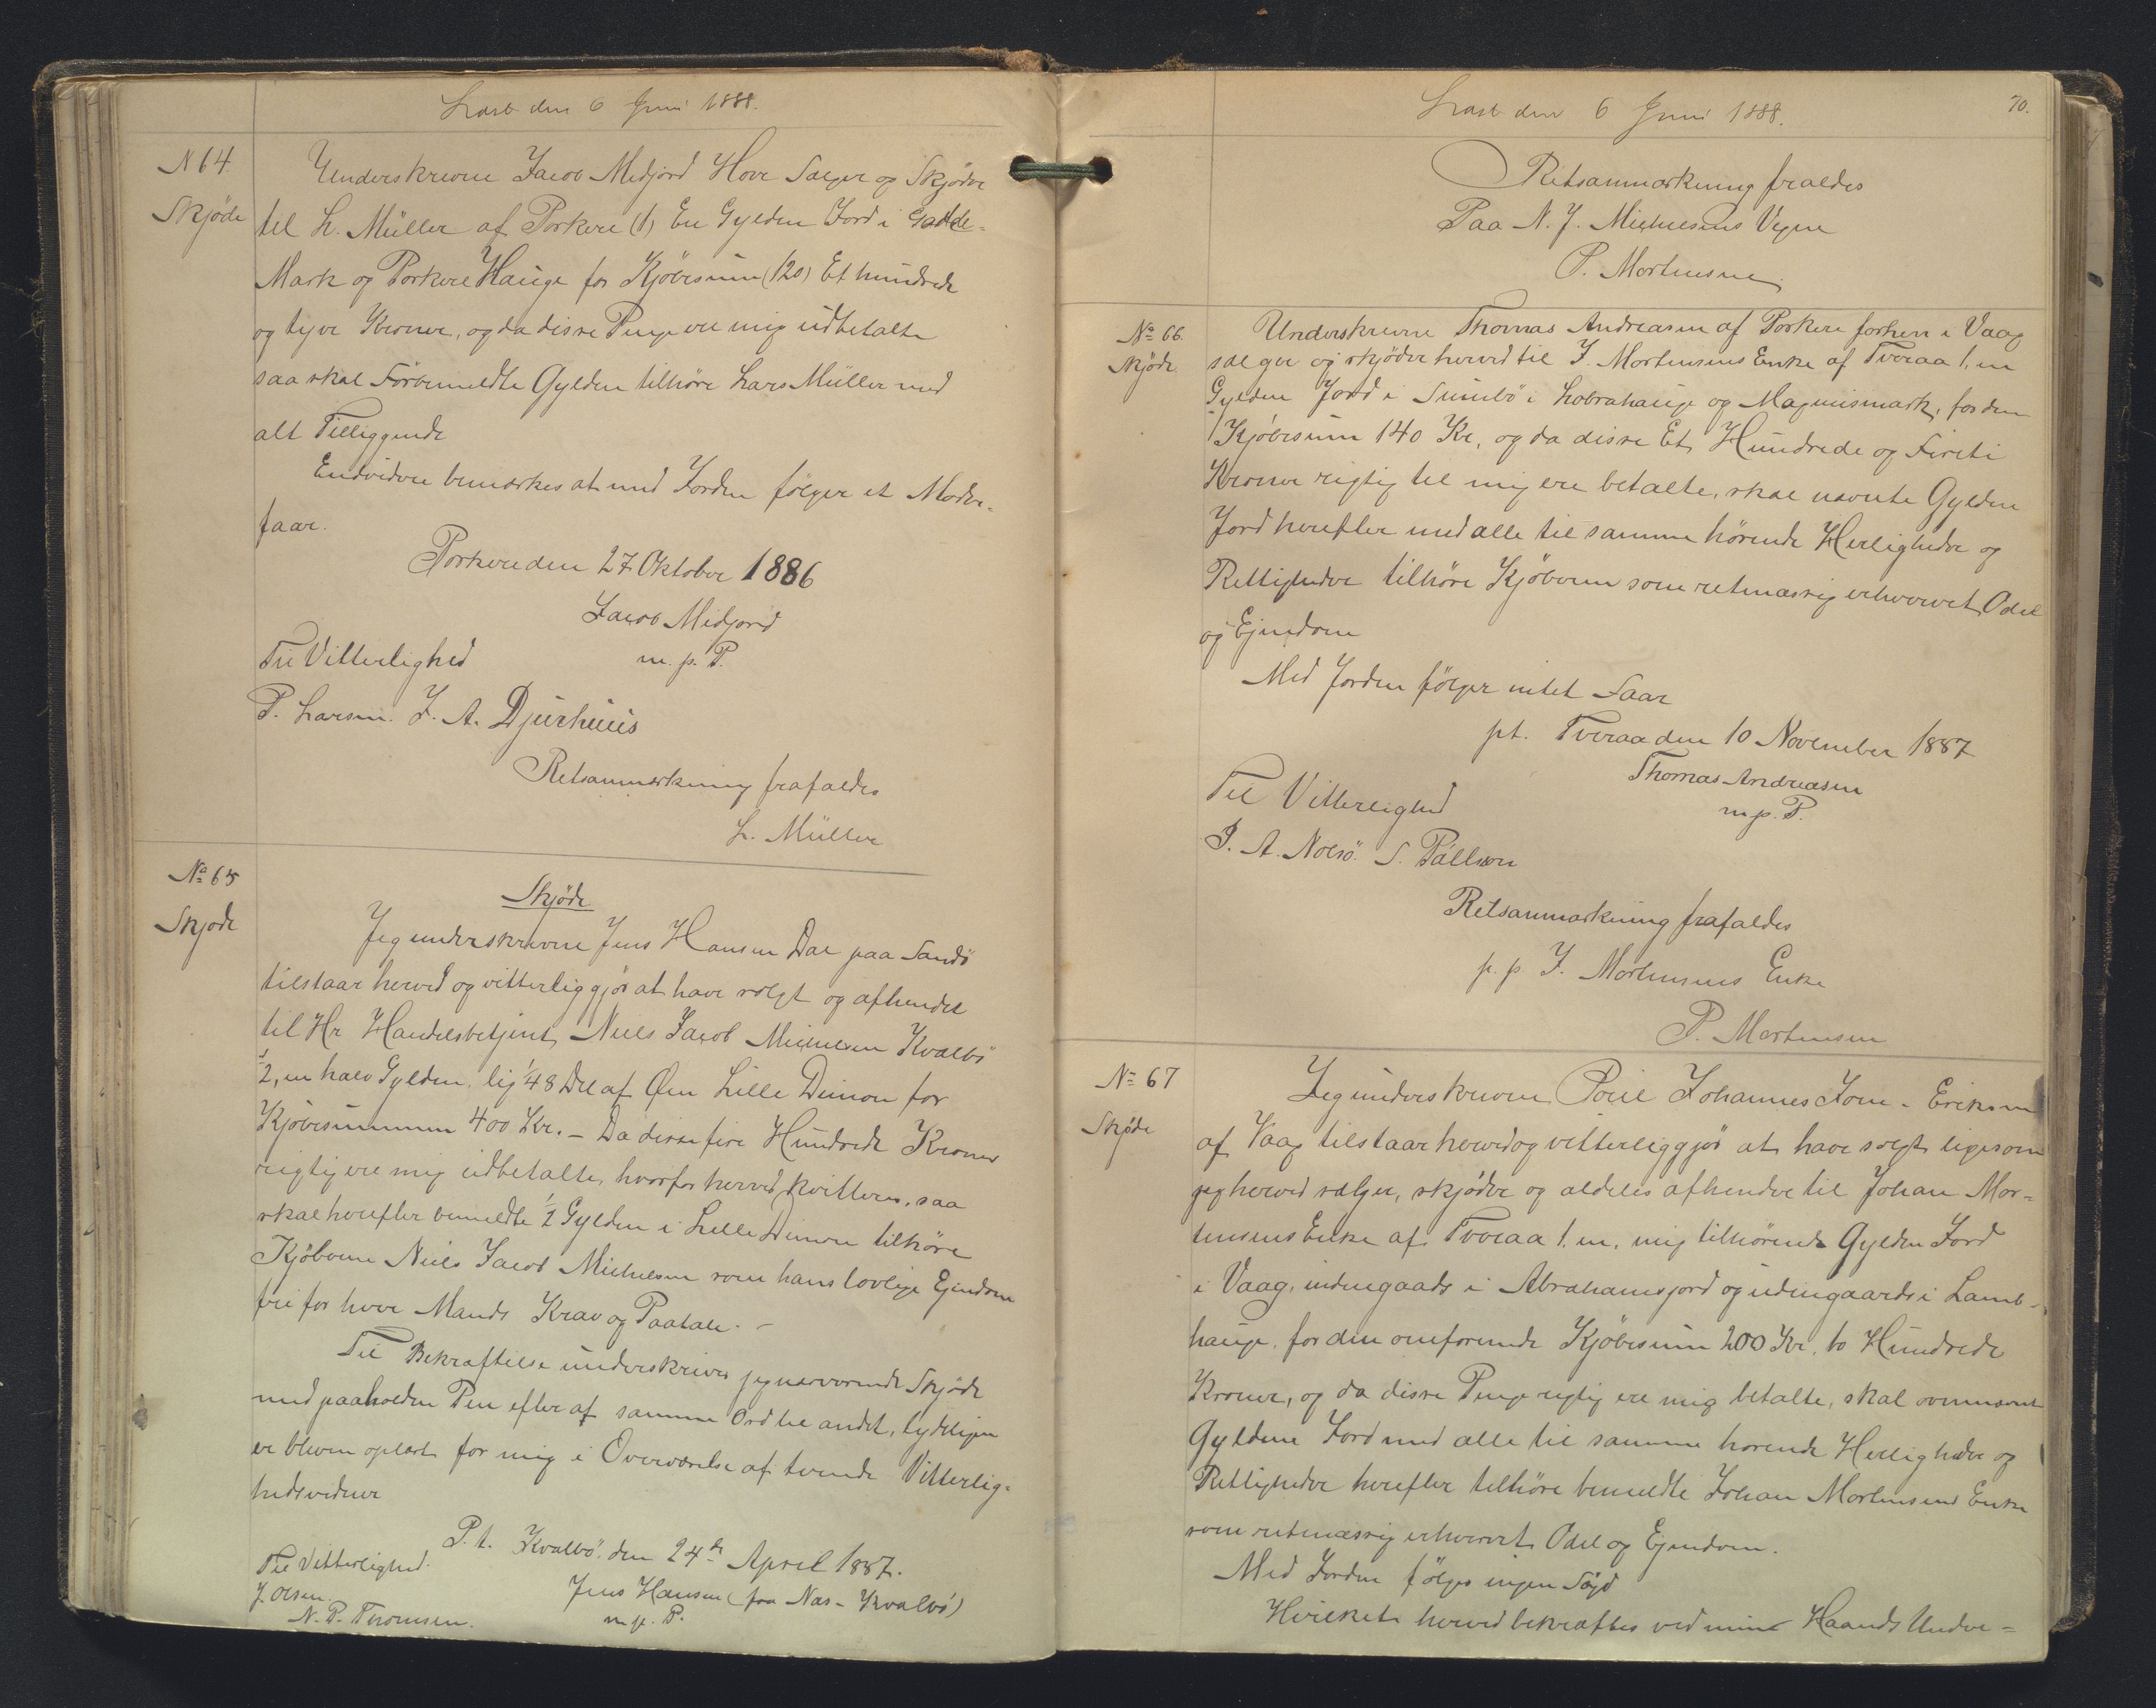 Læst den 6 Juni 1888.
N 64.
Skjöde
Underskrevne Jacob Midjord Hove Sælger og Skjöder
til L. Müller af Porkere (1) En Gylden Jord i Gadde-
Mark og Porkere Hauge for Kjöbesum (120) Et hundrede
og tyve Kroner, og da disse Penge ere mig udbetalte
saa skal Förbemeldte Gylden tilhöre Lars Müller med
alt Tilliggende
Endvidere bemærkes at med Jorden fölger et Moder-
faar.
Porkere den 27 Oktober 1886
Jacob Midjord
m. p. P.
Til Vitterlighed
P. Larsen. J. A. Djurhuus
Retsanmærkning frafaldes
L. Müller
No 65
Skjöde
Skjöde
Jeg underskrevne Jens Hansen Dal paa Sandö
tilstaar herved og vitterliggjör at have solgt og afhendet
til Hr Handelsbetjent Niels Jacob Michelsen Kvalbö
1/2, en halv Gylden. lig 1/48 Del af Øen Lille Dimon for
Kjöbesummen 400 Kr. – Da disse fire Hundrede Kroner
rigtig ere mig udbetalte, hvorfor herved kvitteres, saa
skal herefter bemeldte 1/2 Gylden i Lille Dimon tilhöre
Kjöberen Niels Jacob Michelsen som hans lovlige Ejendom
fri for hver Mands Krav og Paatale. –
Til Bekræftelse underskriver jeg nærværende Skjöde
med paaholden Pen efter af samme Ord til andet, tydeligen
er bleven oplæst for mig i Overværelse af tvende Vitterlig-
hedsvidner
P. t. Kvalbö den 24de April 1887.
Til Vitterlighed.
Jens Hansen (fra Næs – Kvalbö)
J. Olsen.
m. p. P.
N. P. Thomsen.
Læst den 6 Juni 1888.
70.
Retsanmærkning fraldes
Paa N. J. Michelsens Vegne
P. Mortensen
No 66.
Skjöde
Underskrevne Thomas Andreasen af Porkere forhen i Vaag
sælger og skjöder herved til J. Mortensens Enke af Tveraa 1. en
Gylden Jord i Sumbö i Lobrahauge og Magnusmark, for den
Kjöbesum 140 Kr, og da disse Et Hundrede og Firti
Kroner rigtig til mig ere betalte, skal nævnte Gylden
Jord herefter med alle til samme hörende Herligheder og
Rettigheder tilhöre Kjöberen som retmæssig erhvervet Odel
og Ejendom
Med Jorden fölger intet Faar
pt. Tveraa den 10 November 1887
Thomas Andreasen
m. p. P.
Til Vitterlighed
J. A. Nolsö. S. Pállsson
Retsanmærkning frafaldes
p. p. J. Mortensens Enke
P. Mortensen
No 67
Skjöde
Jeg underskrevne Poul Johannes Joen- Eriksen
af Vaag tilstaar herved og vitterliggjör at have solgt ligesom
jeg herved sælger, skjöder og aldeles afhender til Johan Mor-
tensens Enke af Tveraa 1. en, mig tilhörende Gylden Jord
i Vaag, indengaards i Abrahamsjord og udengaards i Lamb-
hauge, for den omforenede Kjöbesum 200 Kr, to Hundrede
Kroner, og da disse Penge rigtig ere mig betalte, skal ovennævnte
Gylden Jord med alle til samme hörende Herligheder og
Rettigheder herefter tilhöre bemeldte Johan Mortensens Enke
som retmæssig erhvervet Odel og Ejendom.
Med Jorden fölges ingen Söyd
Hvilket herved bekræftes ved min Haands Under-